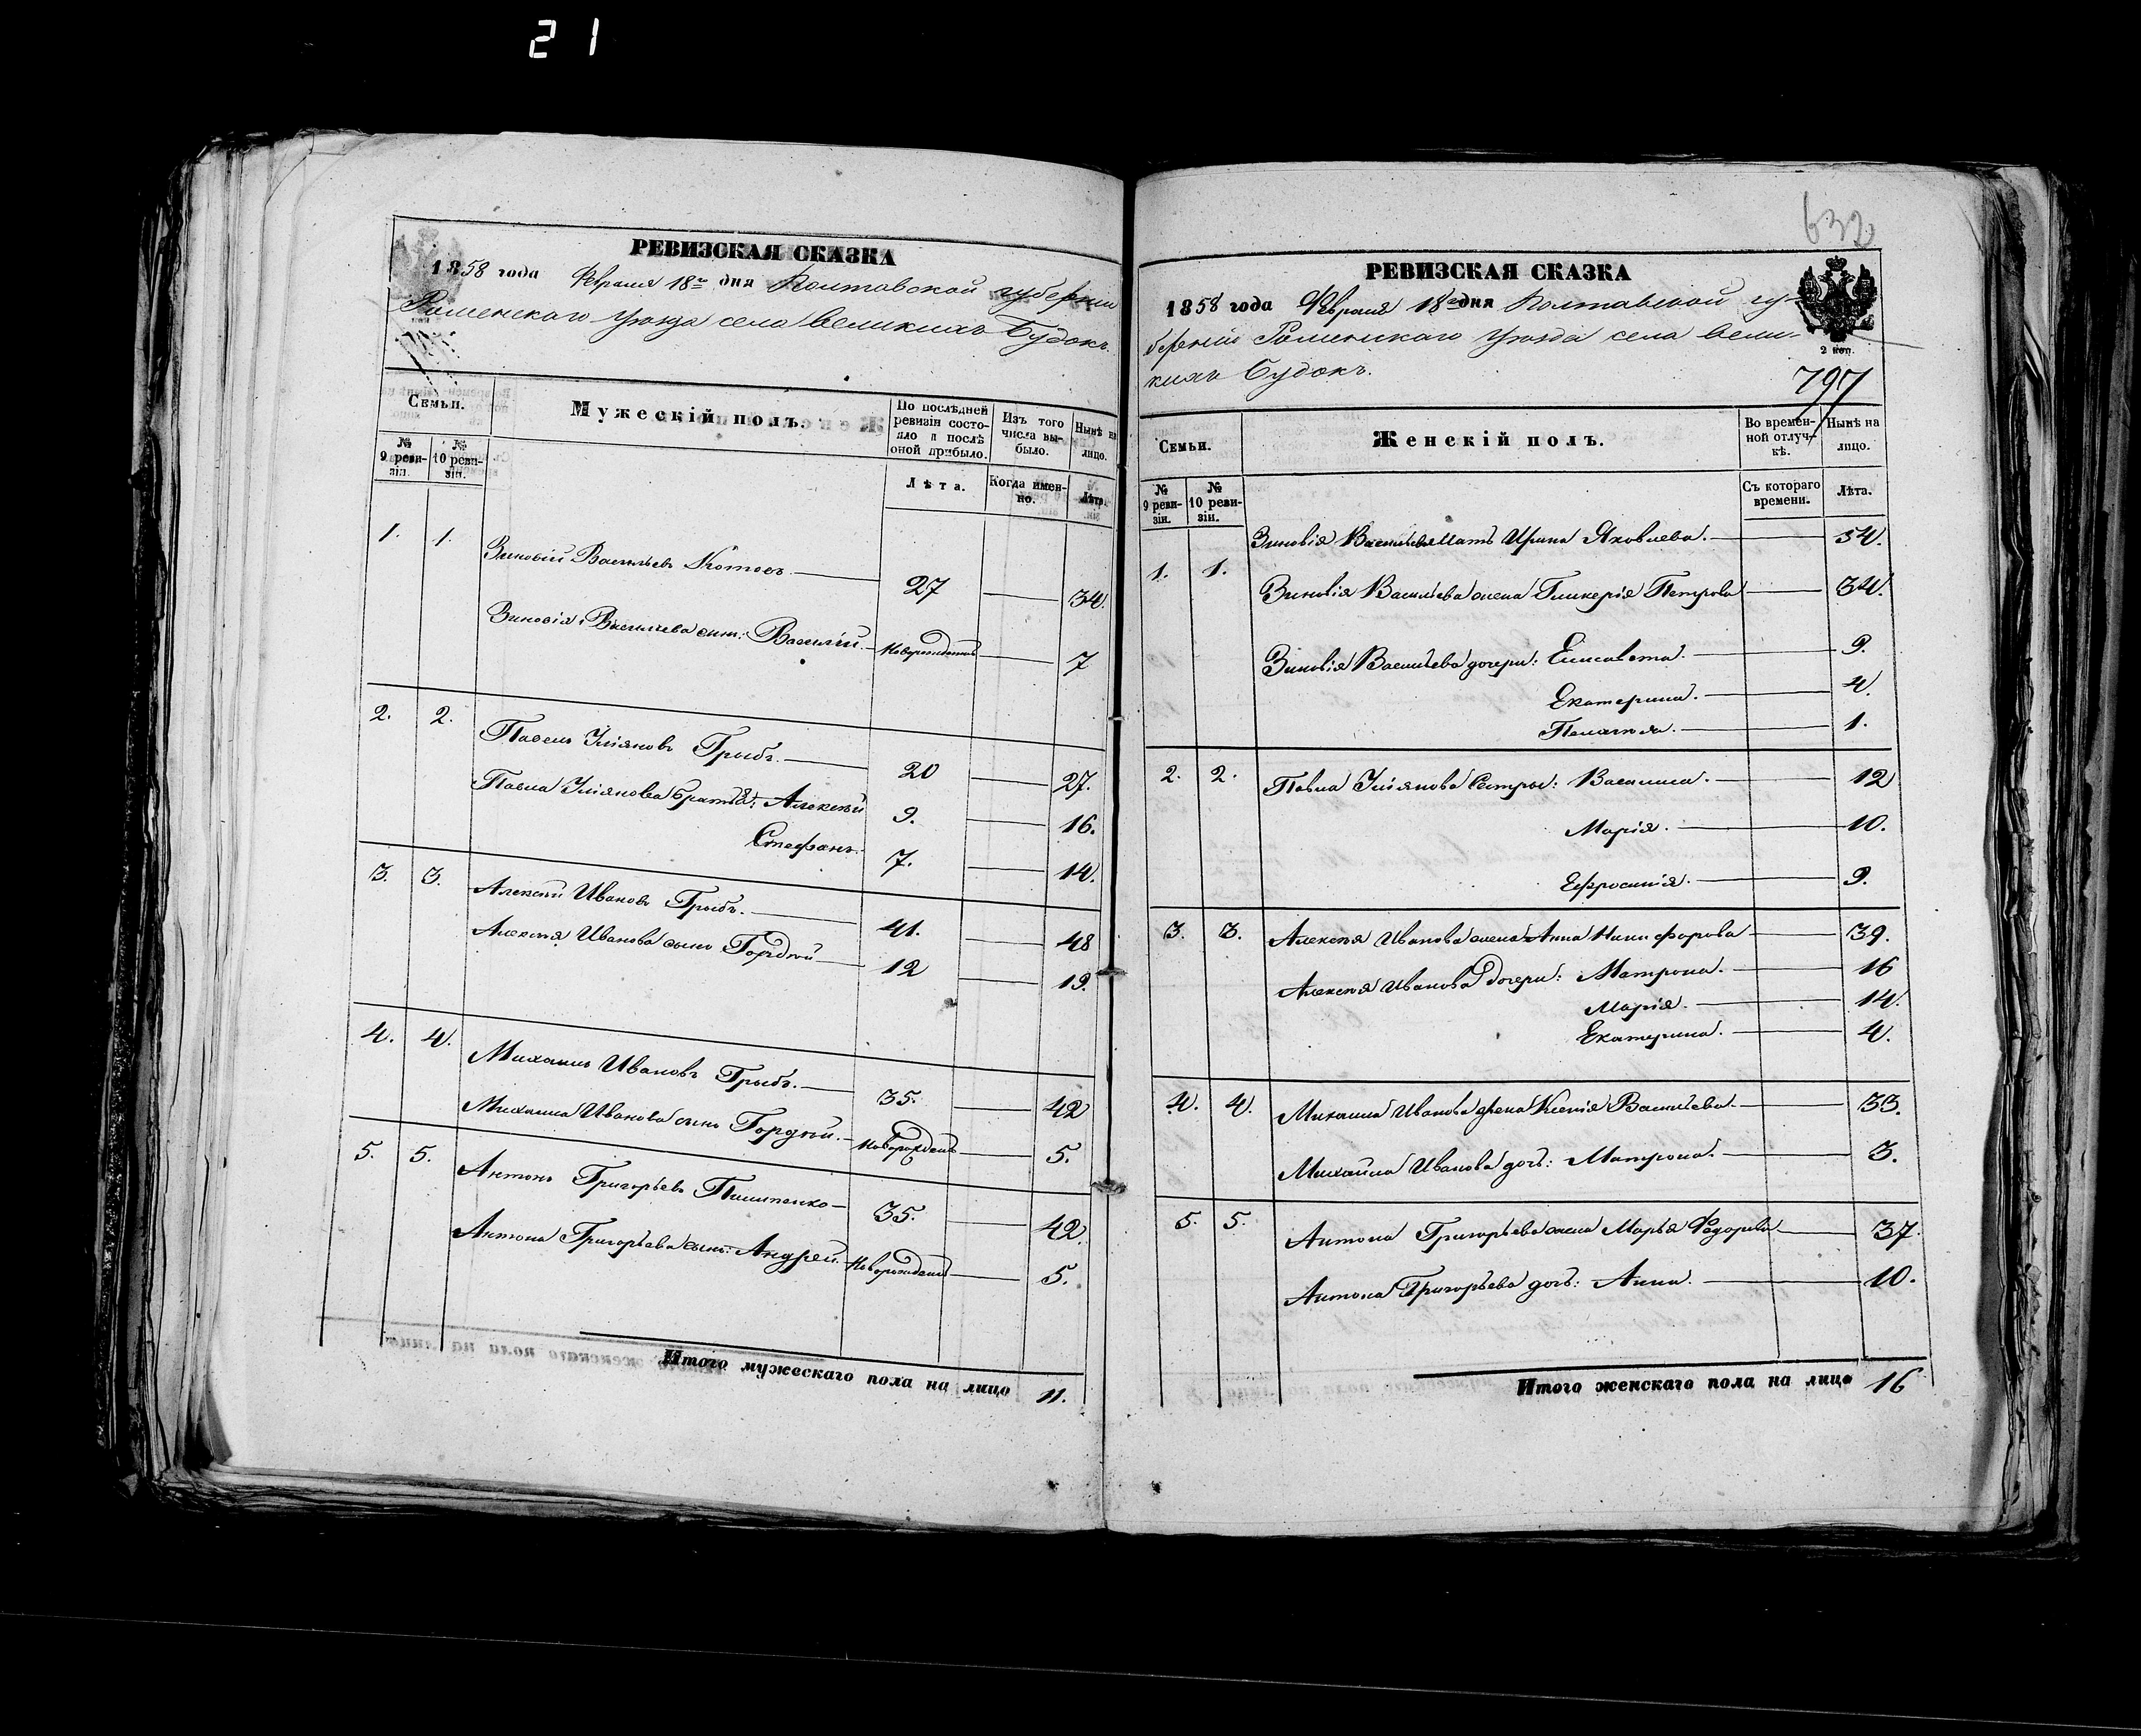 21
РЕВИЗСКАЯ СКАЗКА
1858 года Февраля 18го дня Полтавской губернии
Роменскаго уезда села Великихъ Будокъ.
Семьи.
Мужескій полъ.
По послѣдней ревизіи состояло и послѣ оной прибыло.
Изъ того числа выбыло.
Нынѣ на лицо.
№ 9 ревизіи.
№ 10 ревизіи.
Лѣта.
Когда именно.
Лѣта.
1. 1. Зиновій Васильевъ Котовъ 27 34.
Зиновія Васильева сынъ: Василій. Новорожденъ 7
2. 2. Павелъ Уліяновъ Грибъ. 20 27.
Павла Уліянова братья: Алексѣй 9. 16.
Стефанъ. 7. 14.
3. 3. Алексѣй Ивановъ Грибъ. 41. 48
Алексѣя Иванова сынъ Гордѣй 12 19.
4. 4. Михаилъ Ивановъ Грибъ. 35. 42
Михаила Иванова сынъ Гордѣй. Новорожденъ 5.
5. 5. Антонъ Григорьевъ Пилипенко 35. 42.
Антона Григорьева сынъ: Андрей. Новорожденъ 5.
Итого мужескаго пола на лицо 11.
632
РЕВИЗСКАЯ СКАЗКА
1858 года Февраля 18го дня Полтавской гу-
берніи Роменскаго уезда села Вели-
кихъ Будокъ.
2 коп.
797
Семьи.
Женскій полъ.
Во временной отлучкѣ.
Нынѣ на лицо.
№ 9 ревизіи.
№ 10 ревизіи.
Съ котораго времени.
Лѣта.
Зиновія Васильева Мать Ирина Яковлева. 54.
1. 1. Зиновія Васильева жена Гликерія Петрова 34.
Зиновія Васильева дочери: Елисавета. 9.
Екатерина. 4.
Пелагея. 1.
2. 2. Павла Уліянова Сестры: Василиса. 12
Марія. 10.
Ефросинія. 9.
3. 3. Алексѣя Иванова жена Анна Никифорова 39.
Алексѣя Иванова Дочери: Матрона. 16
Марія. 14.
Екатерина. 4.
4. 4. Михаила Иванова жена Ксенія Васильева. 33.
Михаила Иванова дочь: Матрона. 3.
5. 5. Антона Григорьева жена Марья Федорова 37.
Антона Григорьева дочь: Анна. 10.
Итого женскаго пола на лицо 16